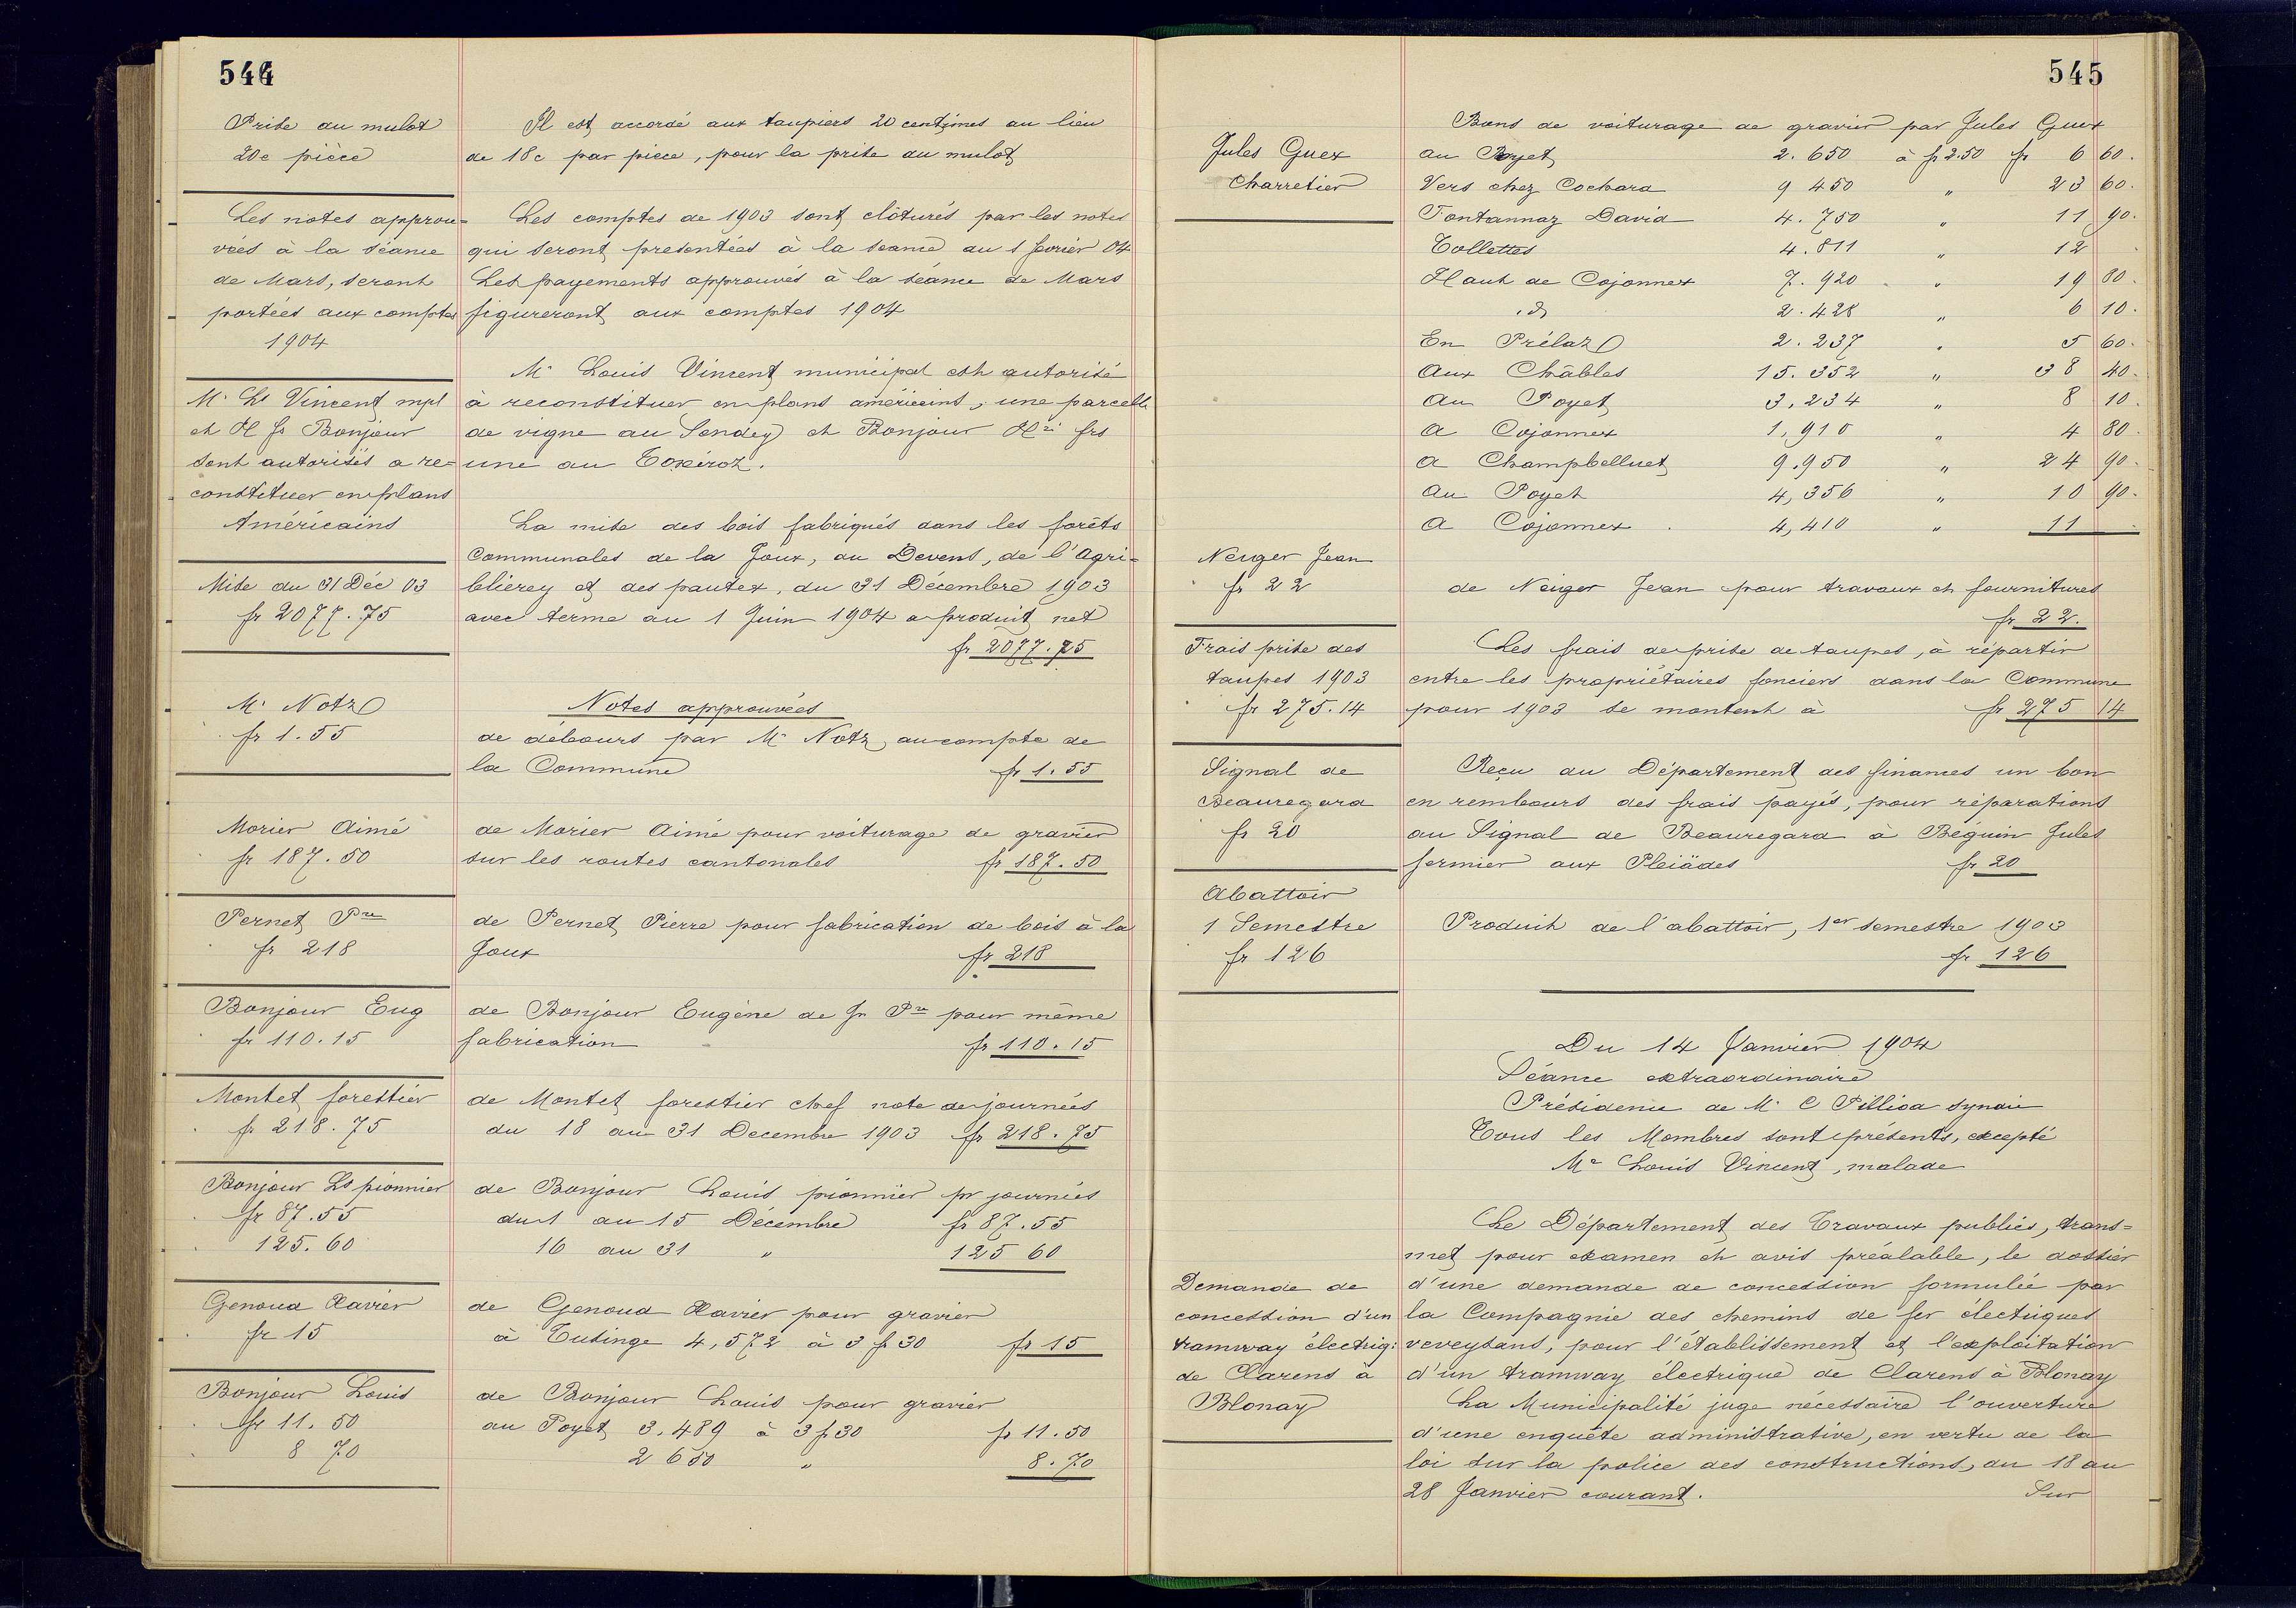 544
Prise du mulot
20c pièce
Il est accordé aux taupiers 20 centimes au lieu
de 18c par pièce, pour la prise du mulot
Les notes approu=
vées à la séance
de Mars, seront
portées aux comptes
1904
Les comptes de 1903 sont clôturés par les notes
qui seront presentées à la seance du 1 fevrier 04
Les payements approuvés à la séance de Mars
figureront aux comptes 1904
Mr Ls Vincent mpl
et H fs Bonjour
sont autorisés a re=
constituer en plans
Américains
Mr Louis Vincent municipal est autorisé
à reconstituer en plans américains, une parcelle
de vigne au Sendey et Bonjour Hri frs
une au
Mise du 31 Déc 03
fr 2077.75
La mise des bois fabriqués dans les forêts
Communales de la Joux, au Devens, de l'Agri=
blierey et des pautex, du 31 Décembre 1903
avec terme au 1 Juin 1904 a produit net
fr 2077.75
Notes approuvées
Mr Notz
fr 1.55
de débours par Mr Notz au compte de
la Commune fr 1.55
Morier Aimé
fr 187.50
de Morier Aimé pour voiturage de gravier
sur les routes cantonales fr 187.50
Pernet Pre
fr 218
de Pernet Pierre pour fabrication de bois à la
Joux fr 218
Bonjour Eug
fr 110.15
de Bonjour Eugène de Jn Pre pour même
fabrication fr 110.15
Montet forestier
fr 218.75
de Montet forestier chef note de journées
du 18 au 31 Decembre 1903 fr 218.75
Bonjour Ls pionnier
fr 87.55
125.60
de Bonjour Louis pionnier pr journées
du 1 au 15 Décembre fr 87.55
16 au 31 " 125 60
Genoud Xavier
fr 15
de Genoud Xavier pour gravier
à Tusinge 4,572 à 3 fr 30 fr 15
Bonjour Louis
fr 11.50
8 70
de Bonjour Louis pour gravier
au Poyet 3.489 à 3 fr 30 fr 11.50
2 650 " 8.70
545
Jules Guex
Charretier
Bons de voiturage de gravier par Jules Guex
au Poyet 2.650 à fr 2.50 fr 6 60.
Vers chez Cochard 9 450 " 23 60.
Fontannaz David 4.750 " 11 90.
Tollettes 4.811 " 12
Haut de Cojonnex 7.920 " 19 80.
id 2.428 " 6 10.
En Prélaz 2.237 " 5 60.
Aux Châbles 15.352 " 38 40.
Au Poyet 3,234 " 8 10.
A Cojonnex 1,910 " 4 80.
A Champbelluet 9.950 " 24 90.
Au Poyet 4,356 " 10 90.
A Cojonnex 4,410 " 11
Neiger Jean
fr 22
de Neiger Jean pour travaux et fournitures
fr 22.
Frais prise des
taupes 1903
fr 275.14
Les frais de prise de taupes, à répartir
entre les propriétaires fonciers dans la Commune
pour 1903 se montent à fr 275 14
Signal de
Beauregard
fr 20
Reçu du Département des finances un bon
en rembours des frais payés, pour réparations
au Signal de Beauregard à Béguin Jules
fermier aux Pleiädes fr 20
Abattoir
1 Semestre
fr 126
Produit de l'abattoir, 1er semestre 1903
fr 126
Du 14 Janvier 1904
Séance extraordinaire
Présidence de Mr C Pilliod syndic
Tous les Membres sont présents, excepté
Mr Louis Vincent, malade
Demande de
concession d'un
tramway électriq:
de Clarens à
Blonay
Le Département des Travaux publics, trans=
met pour examen et avis préalable, le dossier
d'une demande de concession formulée par
la Compagnie des chemins de fer électriques
veveysans, pour l'établissement et l'exploitation
d'un tramway électrique de Clarens à Blonay
La Municipalité juge nécessaire l'ouverture
d'une enquête administrative, en vertu de la
loi sur la police des constructions, du 18 au
28 Janvier courant. Sur